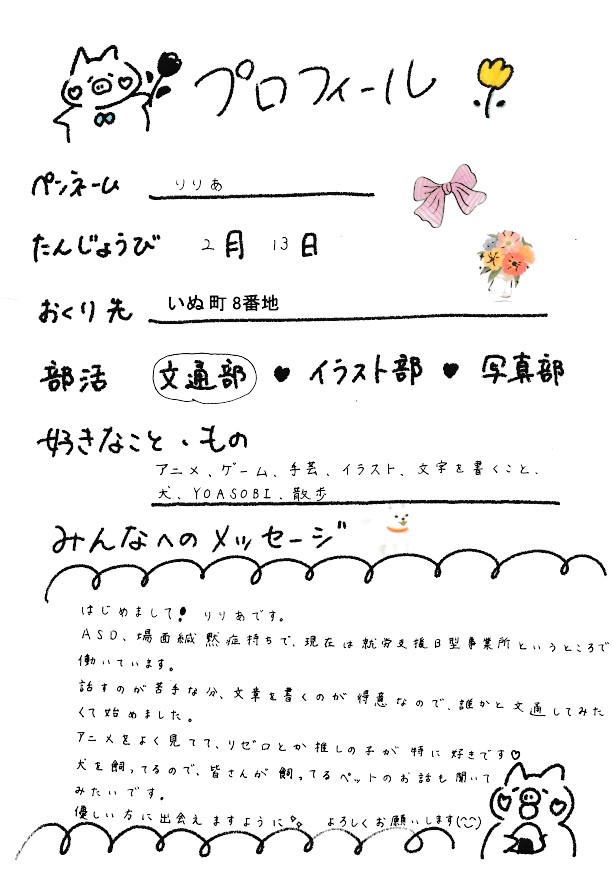 プロフィール
ペンネーム りりあ
たんじょうび 2月 13日
おくり先 いぬ町8番地
部活 文通部 ♥ イラスト部 ♥ 写真部
好きなこと、もの
アニメ、ゲーム、手芸、イラスト、文字を書くこと、
犬、YOASOBI、散歩
みんなへのメッセージ
はじめまして! りりあです。
ASD、場面緘黙症持ちで、現在は就労支援B型事業所というところで
働いています。
話すのが苦手な分、文章を書くのが得意なので、誰かと文通してみた
くて始めました。
アニメをよく見てて、リゼロとか推しの子が特に好きです♡
犬を飼ってるので、皆さんが飼ってるペットのお話も聞いて
みたいです。
優しい方に出会えますように✨ よろしくお願いします(◡̈)